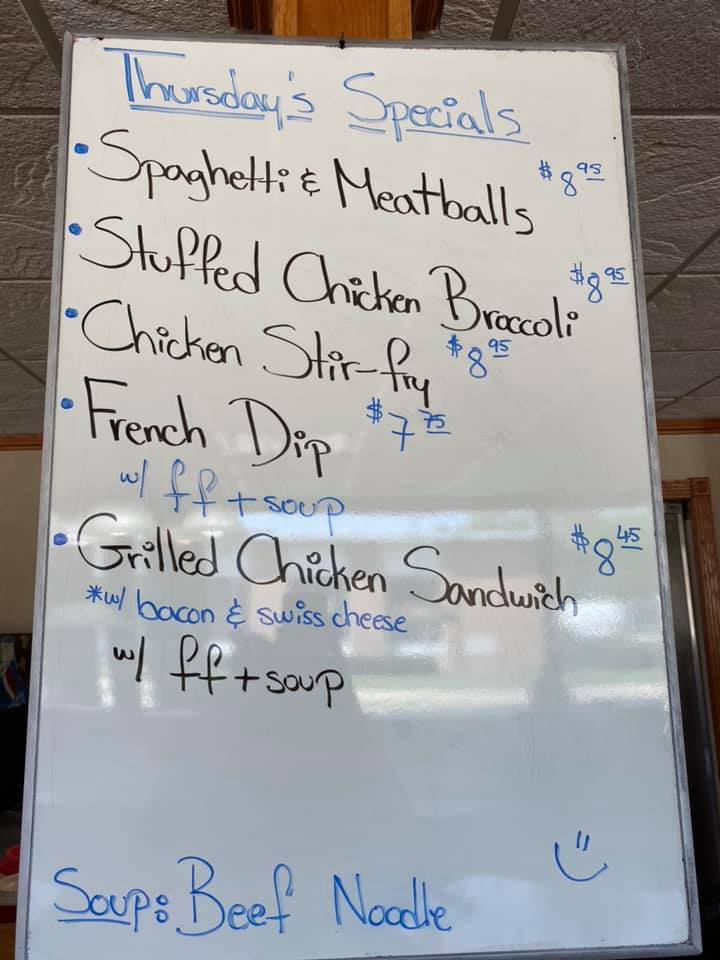 Thursday's Specials
• Spaghetti & Meatballs $8.95
• Stuffed Chicken Broccoli $8.95
• Chicken Stir-fry $8.95
• French Dip $7.75
w/ ff + soup
• Grilled Chicken Sandwich $8.45
*w/ bacon & swiss cheese
w/ ff + soup
Soup: Beef Noodle